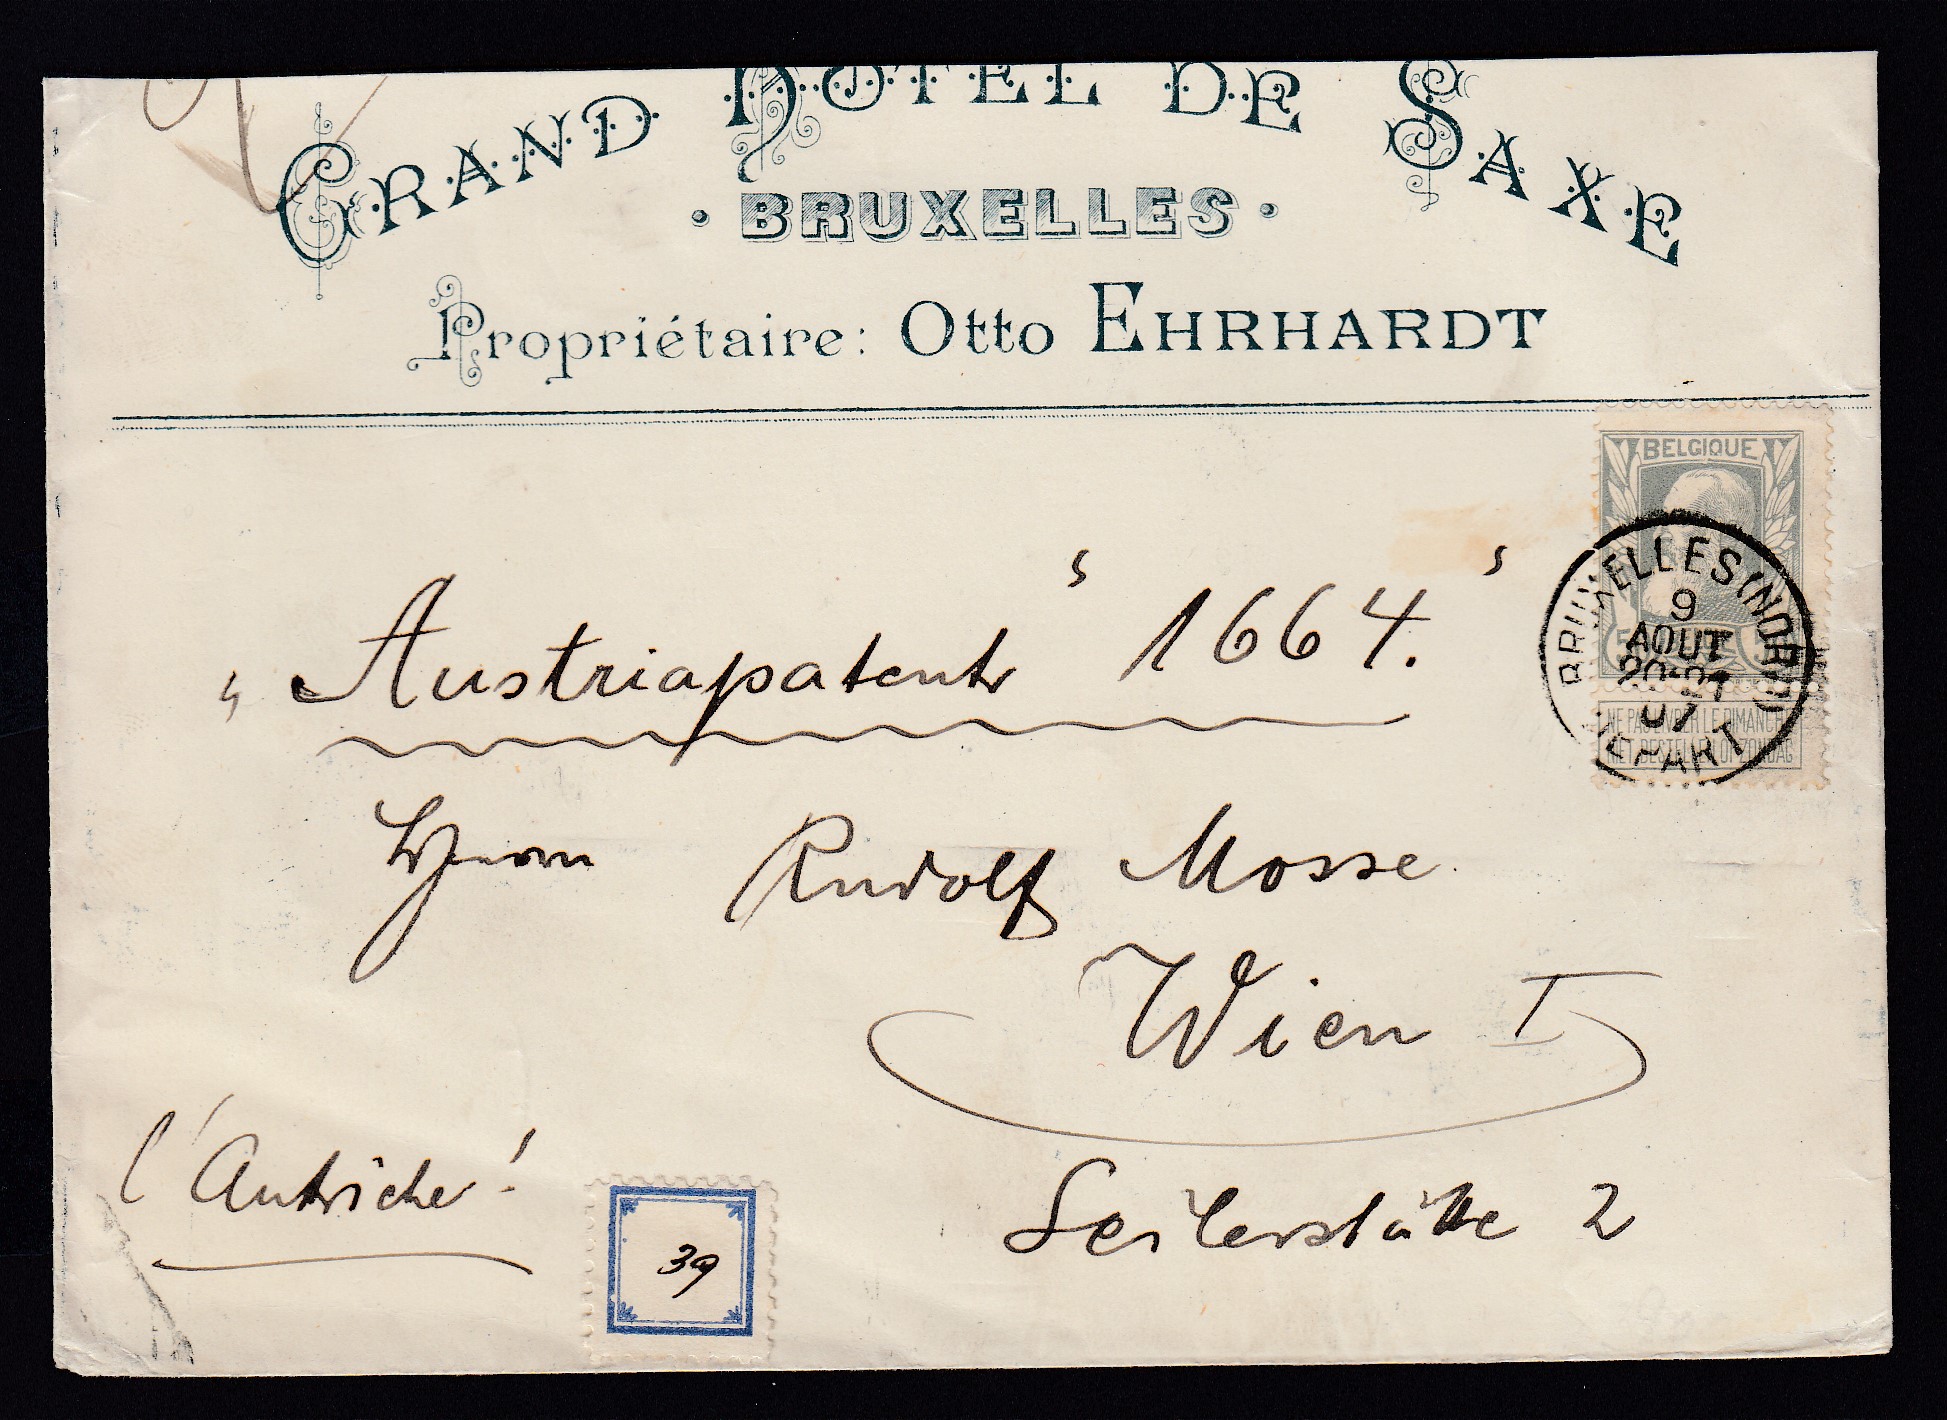 GRAND HÔTEL DE SAXE
• BRUXELLES •
Propriétaire: Otto EHRHARDT
BELGIQUE
BRUXELLES (NORD)
9
AOUT
20-21
07
DEPART
NE PAS LIVRER LE DIMANCHE
NIET BESTELLEN OP ZONDAG
„Austriapatent" 1664."
Herrn Rudolf Mosse
Wien I
l'Autriche!
Seilerstätte 2
39